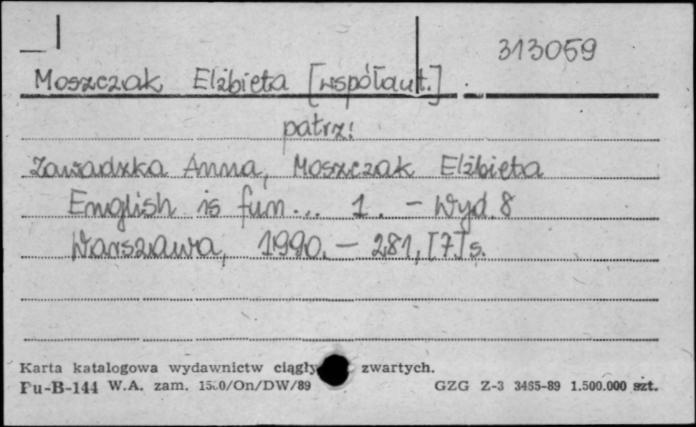 313059
Moszczak Elżbieta [współaut.]
patrz:
Zawadzka Anna, Moszczak Elżbieta
English is fun... 1. - Wyd. 8
Warszawa, 1990. - 281, [7] s.
Karta katalogowa wydawnictw ciągły zwartych.
Pu-B-144 W.A. zam. /On/DW/89 GZG Z-3 3465-89 1.500.000 szt.